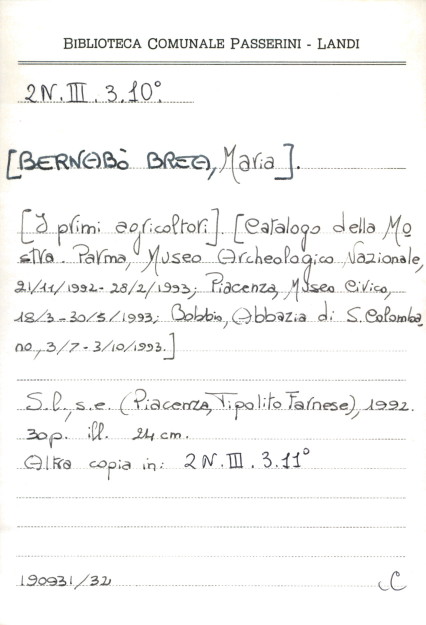 BIBLIOTECA COMUNALE PASSERINI - LANDI
2N.III.3.10°
[BERNABÒ BREA, Maria].
[I primi agricoltori]. [Catalogo della Mo
stra. Parma, Museo Archeologico Nazionale,
21/11/1992-28/2/1993; Piacenza, Museo Civico,
18/3-30/5/1993; Bobbio, Abbazia di S. Colomba
no, 3/7-3/10/1993.]
S.l., s.e. (Piacenza, Tipolito Farnese), 1992.
30p. ill. 24 cm.
Altra copia in: 2N.III.3.11°
190931/32
C